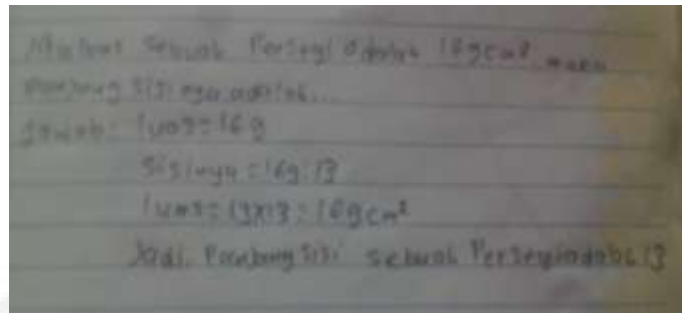 Jika luas sebuah Persegi adalah 169cm² maka
Panjang sisi nya adalah...
Jawab: luas=169
Sisinya=169:13
luas=13x13=169cm²
Jadi Panjang sisi sebuah Persegi adalah 13